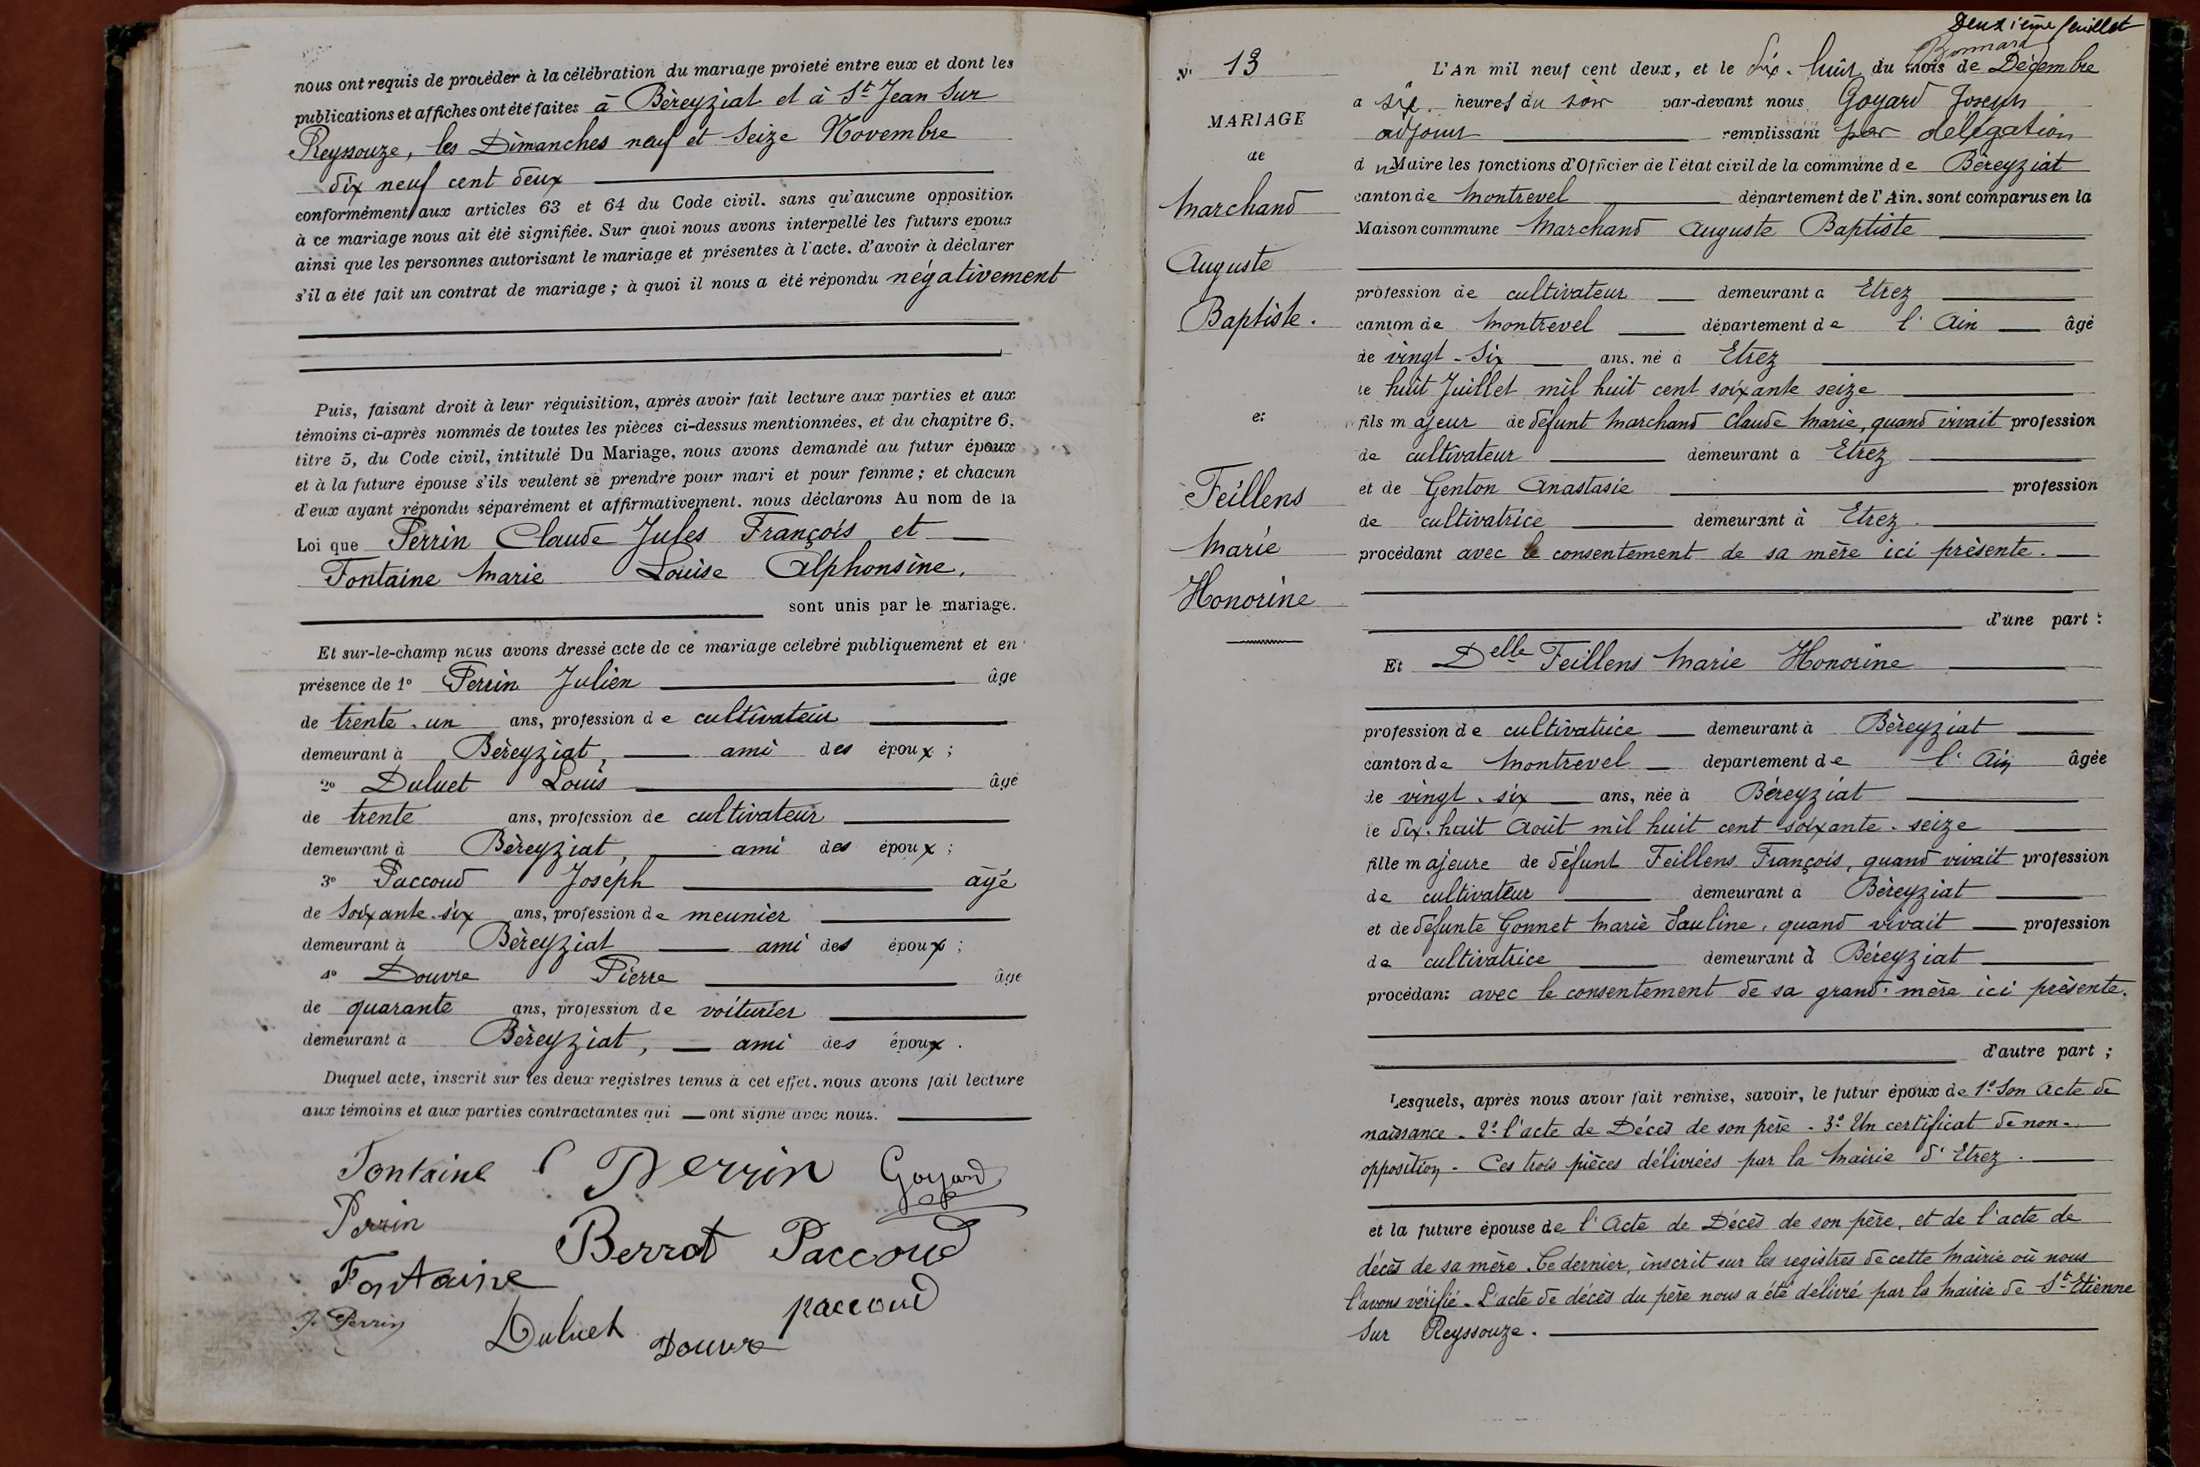 nous ont requis de procéder à la célébration du mariage projeté entre eux et dont les
publications et affiches ont été faites à Béreyziat et à St Jean sur
Reyssouze, les Dimanches neuf et Seize Novembre
dix neuf cent deux
conformément aux articles 63 et 64 du Code civil, sans qu'aucune opposition
à ce mariage nous ait été signifiée. Sur quoi nous avons interpellé les futurs epoux
ainsi que les personnes autorisant le mariage et présentes à l'acte, d'avoir à déclarer
s'il a été fait un contrat de mariage ; à quoi il nous a été répondu négativement
Puis, faisant droit à leur réquisition, après avoir fait lecture aux parties et aux
témoins ci-après nommés de toutes les pièces ci-dessus mentionnées, et du chapitre 6,
titre 5, du Code civil, intitulé Du Mariage, nous avons demandé au futur époux
et à la future épouse s'ils veulent se prendre pour mari et pour femme ; et chacun
d'eux ayant répondu séparément et affirmativement, nous déclarons Au nom de la
Loi que Perrin Claude Jules François et
Fontaine Marie Louise Alphonsine,
sont unis par le mariage.
Et sur-le-champ nous avons dressé acte de ce mariage célébré publiquement et en
présence de 1° Perrin Julien âgé
de trente-un ans, profession de cultivateur
demeurant à Béreyziat, ami des époux ;
2° Duluet Louis âgé
de trente ans, profession de cultivateur
demeurant à Béreyziat, ami des époux ;
3° Paccoud Joseph âgé
de soixante-six ans, profession de meunier
demeurant à Béreyziat ami des époux ;
4° Douvre Pierre âgé
de quarante ans, profession de voiturier
demeurant à Béreyziat, ami des époux.
Duquel acte, inscrit sur les deux registres tenus à cet effet, nous avons fait lecture
aux témoins et aux parties contractantes qui ont signé avec nous.
Fontaine Perrin Goyard
Perrin
Berrot Paccoud
Fontaine
J. Perrin
Duluet Douvre paccoud
Deuxième feuillet
Bonnard
N° 13
MARIAGE
de
Marchand
Auguste
Baptiste.
et
Feillens
Marie
Honorine
L'An mil neuf cent deux, et le dix-huit du mois de Décembre
a six heures du soir par-devant nous Goyard Joseph
adjoint remplissant par délégation
du Maire les fonctions d'Officier de l'état civil de la commune de Béreyziat
canton de Montrevel département de l'Ain, sont comparus en la
Maison commune Marchand Auguste Baptiste
profession de cultivateur demeurant a Etrez
canton de Montrevel département de l'Ain âgé
de vingt-six ans, né à Etrez
le huit Juillet mil huit cent soixante seize
fils majeur de défunt Marchand Claude Marie, quand vivait profession
de cultivateur demeurant à Etrez
et de Genton Anastasie profession
de cultivatrice demeurant à Etrez.
procédant avec le consentement de sa mère ici présente.
d'une part :
Et Delle Feillens Marie Honorine
profession de cultivatrice demeurant à Béreyziat
canton de Montrevel departement de l'Ain âgée
de vingt-six ans, née à Béreyziat
le dix-huit Août mil huit cent soixante-seize
fille majeure de défunt Feillens François, quand vivait profession
de cultivateur demeurant à Béreyziat
et de défunte Gonnet Marie Pauline, quand vivait profession
de cultivatrice demeurant à Béreyziat
procédant avec le consentement de sa grand'mère ici présente.
d'autre part ;
Lesquels, après nous avoir fait remise, savoir, le futur époux de 1° Son Acte de
naissance - 2° l'acte de Décès de son père - 3° Un certificat de non-
opposition - Ces trois pièces délivrées par la Mairie d'Etrez.
et la future épouse de l'Acte de Décès de son père, et de l'acte de
décès de sa mère. Ce dernier, inscrit sur les registres de cette Mairie où nous
l'avons vérifié - L'acte de décès du père nous a été délivré par la Mairie de St Etienne
sur Reyssouze.